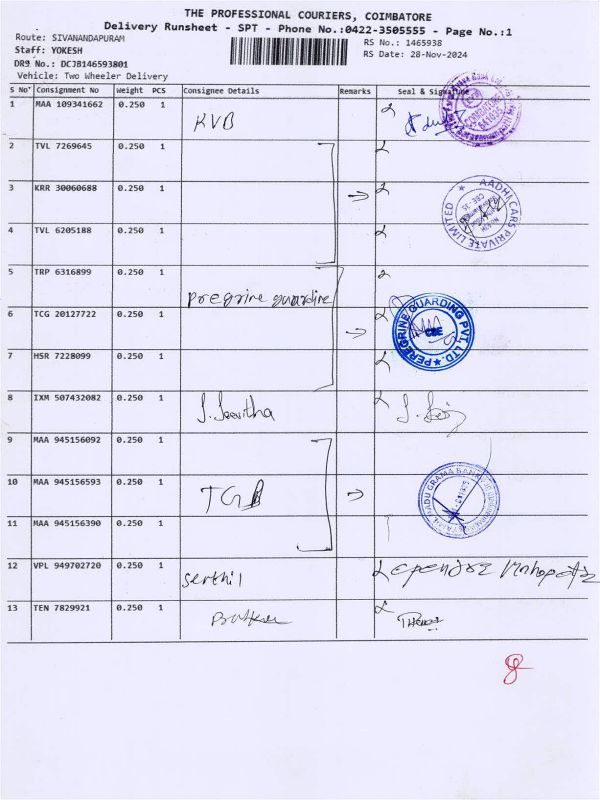 THE PROFESSIONAL COURIERS, COIMBATORE
Delivery Runsheet - SPT - Phone No.:0422-3505555 - Page No.:1
Route: SIVANANDAPURAM
RS No.: 1465938
Staff: YOKESH
RS Date: 28-Nov-2024
DR9 No.: DCJB146593801
Vehicle: Two Wheeler Delivery
S No Consignment No Weight PCS Consignee Details Remarks Seal & Signature
1 MAA 109341662 0.250 1 KVB
2 TVL 7269645 0.250 1
3 KRR 30060688 0.250 1 AADHI CARS PRIVATE LIMITED
4 TVL 6205188 0.250 1
5 TRP 6316899 0.250 1 Peregrine guardine
6 TCG 20127722 0.250 1 PEREGRINE GUARDING PVT. LTD. CBE
7 HSR 7228099 0.250 1
8 IXM 507432082 0.250 1
9 MAA 945156092 0.250 1
10 MAA 945156593 0.250 1 TGB
11 MAA 945156390 0.250 1
12 VPL 949702720 0.250 1
13 TEN 7829921 0.250 1